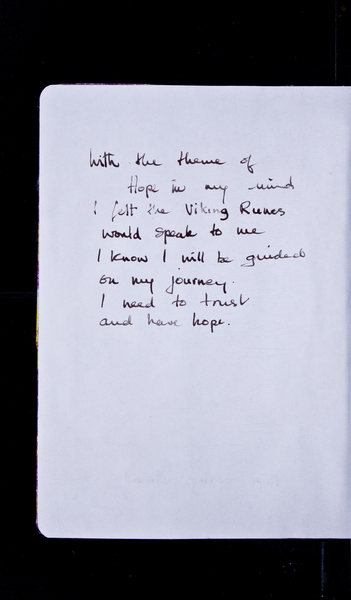 With the theme of
Hope in my mind
I felt the Viking Runes
would speak to me
I know I will be guided
on my journey.
I need to trust
and have hope.